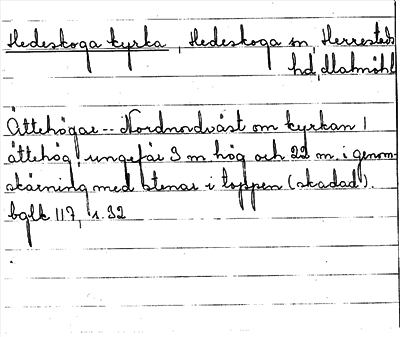 Hedeskoga kyrka, Hedeskoga sn, Herrestads
hd, Malmöhl
Ättehögar -- Nordnordväst om kyrkan 1
ättehög, ungefär 3 m hög och 22 m. i genom-
skärning med stenar i toppen (skadad).
bglk 117, s. 32